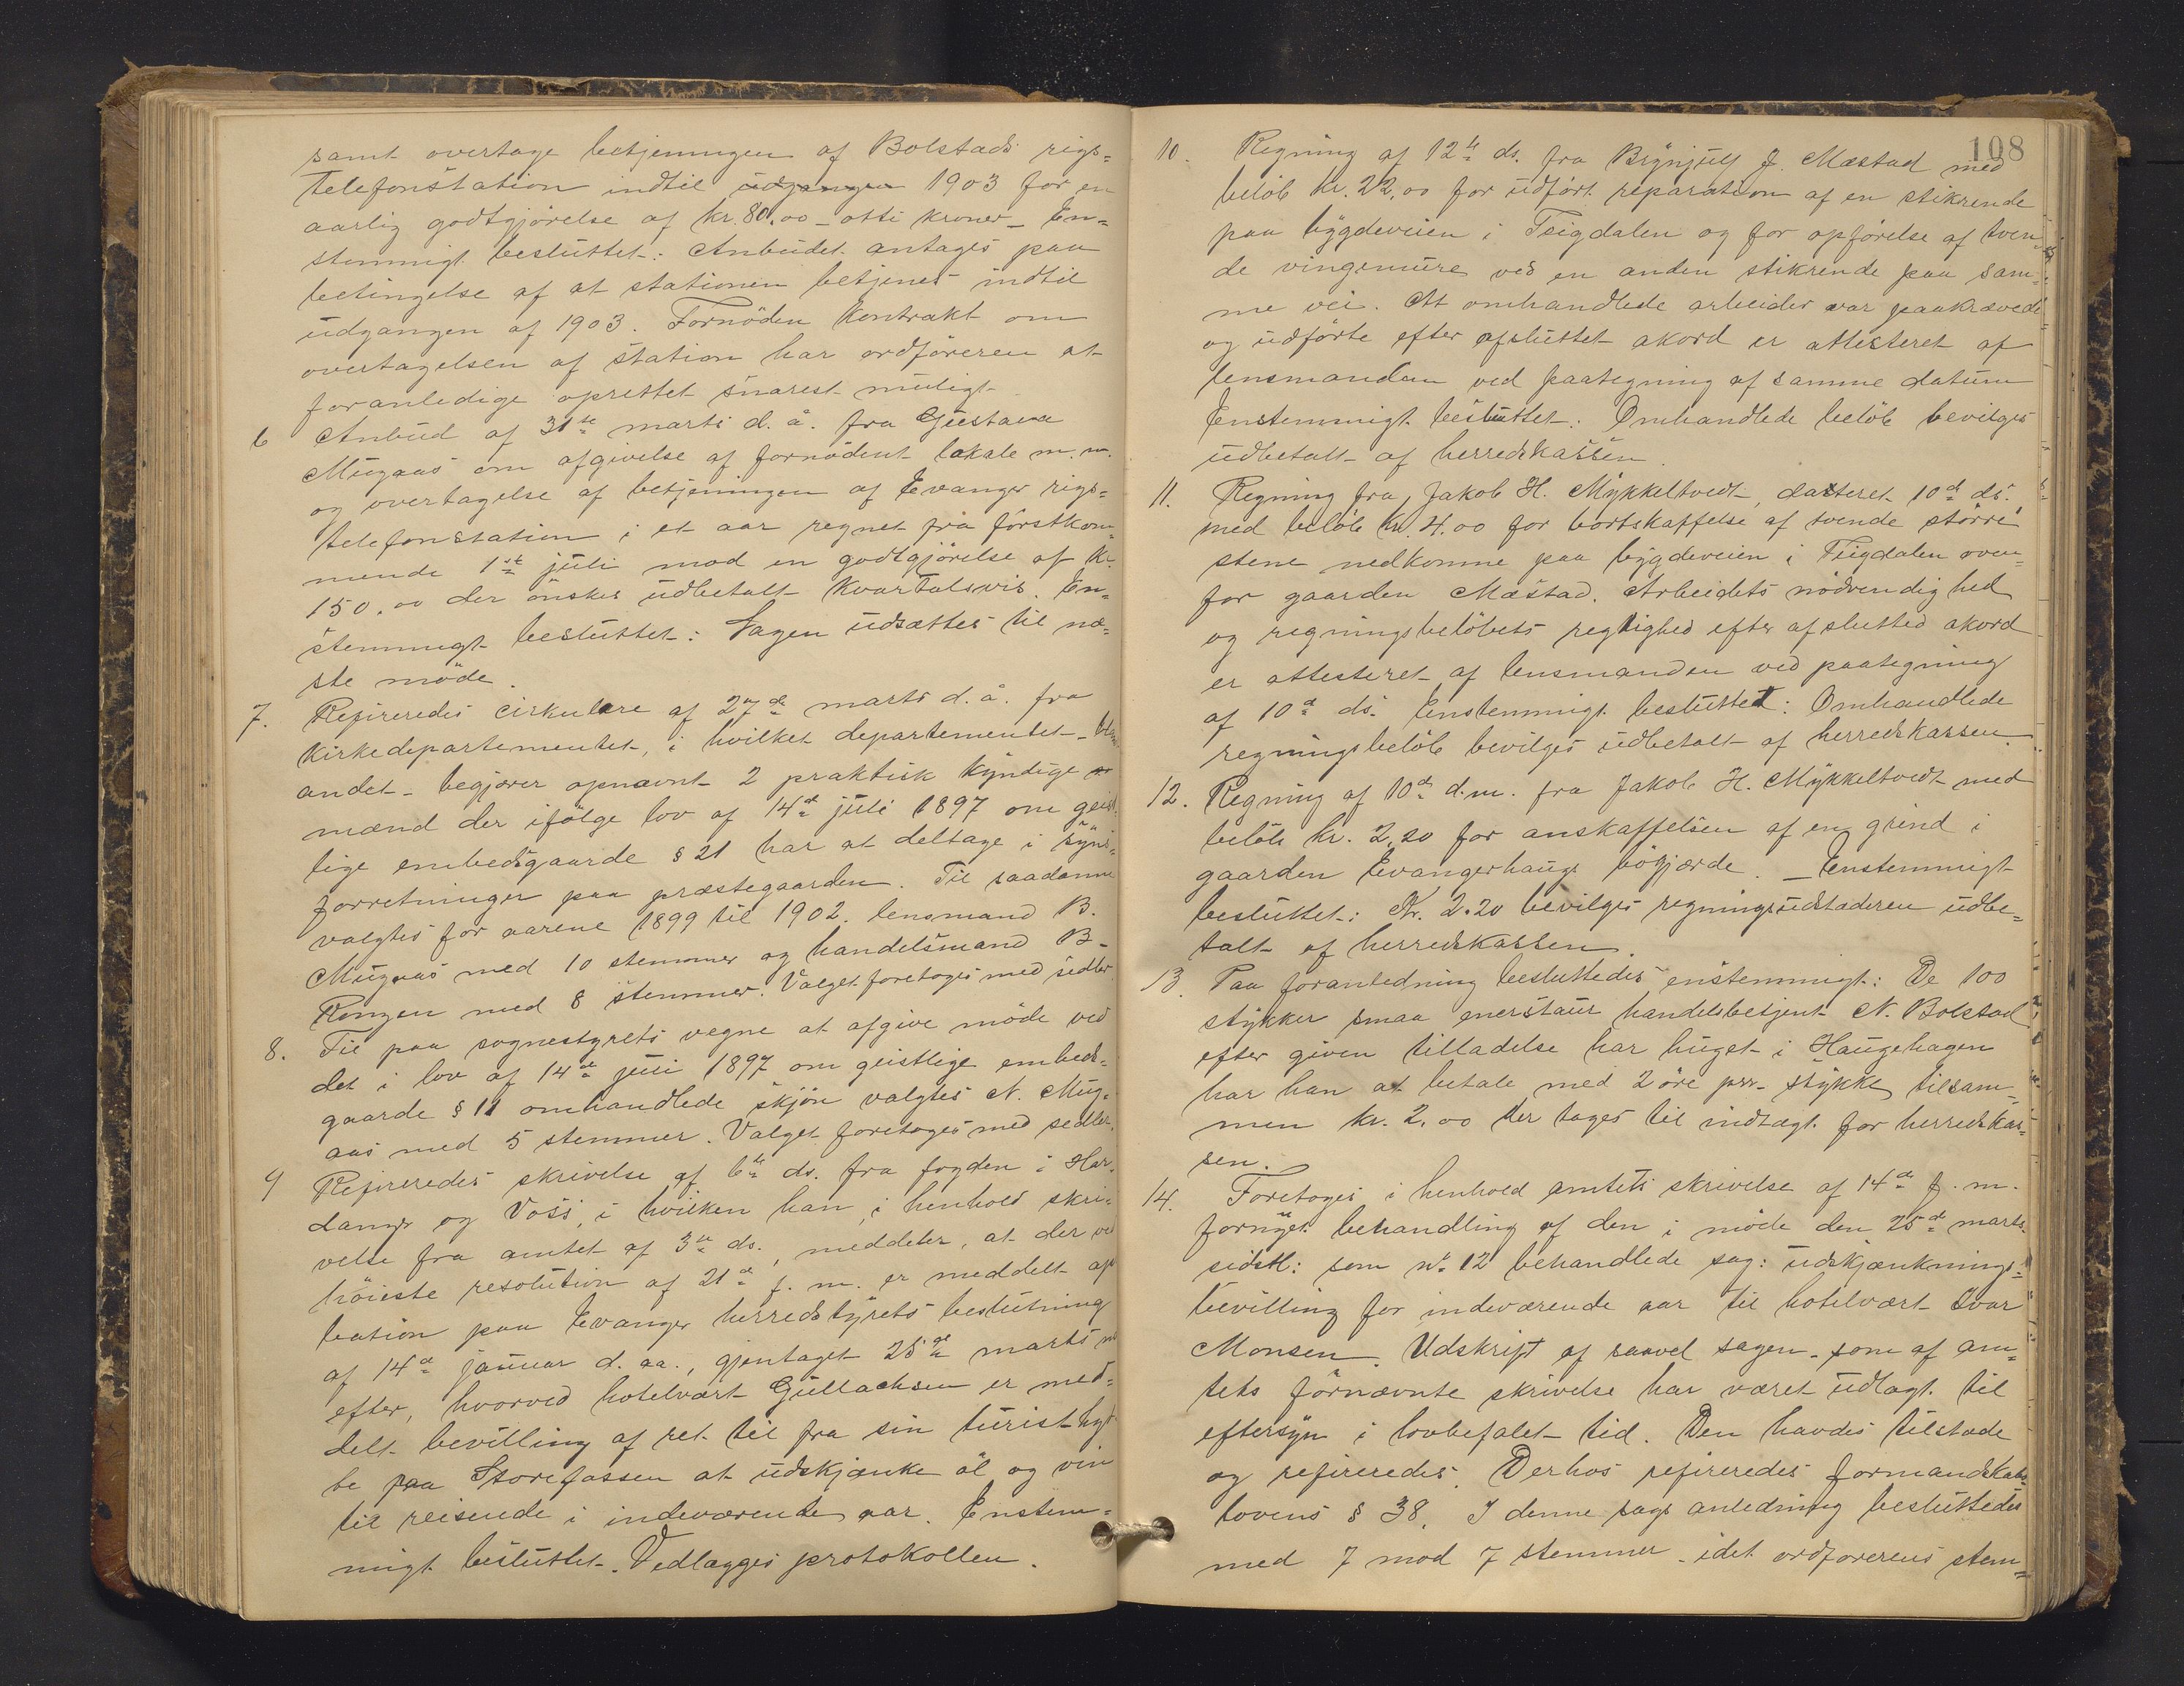 samt overtage betjeningen af Bolstads rigs=
telefonstation indtil udgangen 1903 for en
aarlig godtgjörelse af kr. 80,00 - otti kroner - En=
stemmigt besluttet: Anbudet antages paa
betingelse af at stationen betjenes indtil
udgangen af 1903. Fornöden kontrakt om
overtagelsen af station har ordföreren at
foranledige oprettet snarest muligt.
6 Anbud af 31te marts d. å. fra Gustava
Mugaas om afgivelse af fornödent lokale m. m.
og overtagelse af betjeningen af Evanger rigs=
telefonstation i et aar regnet fra förstkom=
mende 1ste juli mod en godtgjörelse af kr.
150.00 der önskes udbetalt kvartalsvis. En=
stemmigt besluttet: Sagen udsættes til næ=
ste möde.
7. Refereredes cirkulære af 27de marts d. å. fra
kirkedepartementet, i hvilket departementet - blandt
andet - begjærer opnævnt 2 praktisk kyndige
mænd der ifölge lov af 14de juli 1897 om geist=
lige embedsgaarde § 21 har at deltage i syns=
forretninger paa præstegaarden. Til saadanne
valgtes for aarene 1899 til 1902. lensmand B.
Mugaas med 10 stemmer og handelsmand B.
Rongen med 8 stemmer. Valget foretoges med sedler.
8. Til paa sognestyrets vegne at afgive möde ved
det i lov af 14de juli 1897 om geistlige embeds=
gaarde § 11 omhandlede skjön valgtes N. Mug=
aas med 5 stemmer. Valget foretoges med sedler.
9 Refereredes skrivelse af 6te ds. fra fogden i Har=
danger og Voss, i hvilken han i henhold skri=
velse fra amtet af 3te ds., meddeler, at der ved
höieste resolution af 21de f. m. er meddelt ap
bation paa Evanger herredstyrets beslutning
af 14de januar d. aa., gjentaget 25de marts
efter, hvorved hotelvært Gullachsen er med=
delt bevilling af ret til fra sin turisthyt
te paa Storefossen at udskjænke öl og vin
til reisende i indeværende aar. Enstem=
migt besluttet. Vedlægges protokollen.
108
10. Regning af 12te ds. fra Brynjulf J. Mæstad med
belöb kr. 22,00 for udfört reparation af en stikrende
paa bygdeveien i Teigdalen og for opförelse af tven=
de vingemure ved en anden stikrende paa sam=
me vei. At omhandlede arbeider var paakrævede
og udförte efter afsluttet akord er attesteret af
lensmanden ved paategning af samme datum
Enstemmigt besluttet: Omhandlede belöb bevilges
udbetalt af herredskassen.
11. Regning fra Jakob H. Mykkeltvedt, dateret 10de ds.
med belöb kr. 4.00 for bortskaffelse af tvende större
stene nedkomne paa bygdeveien i Teigdalen oven=
for gaarden Mæstad. Arbeidets nödvendighed
og regningsbelöbets rigtighed efter afsluttet akord
er attesteret af lensmanden ved paategning
af 10de ds. Enstemmigt besluttet: Omhandlede
regningsbelöb bevilges udbetalt af herredskassen.
12. Regning af 10de d.m. fra Jakob H. Mykkeltvedt med
belöb kr. 2,20 for anskaffelsen af en grind i
gaarden Evangerhaugs bögjærde. - Enstemmigt
besluttet: Kr. 2.20 bevilges regningsudstederen udbe=
talt af herredskassen.
13. Paa foranledning besluttedes enstemmigt: De 100
stykker smaa enerstaur handelsbetjent N. Bolstad
efter given tilladelse har huget i Haugehagen
har han at betale med 2 öre pr. stykke tilsam=
men kr. 2.00 der tages til indtægt for herredskas=
sen.
14. Foretoges i henhold amtets skrivelse af 14de f. m.
fornyet behandling af den i möde den 25de marts
sidstl: som No 12 behandlede sag: udskjænknings=
bevilling for indeværende aar til hotelvært Ivar
Monsen. Udskrift af saavel sagen - som af am=
tets förnævnte skrivelse har været udlagt til
eftersyn i lovbefalet tid. Den havdes tilstede
og refereredes. Derhos refereredes formandskabs=
lovens § 38. I denne sags anledning besluttedes
med 7 mod 7 stemmer - idet ordförerens stem=